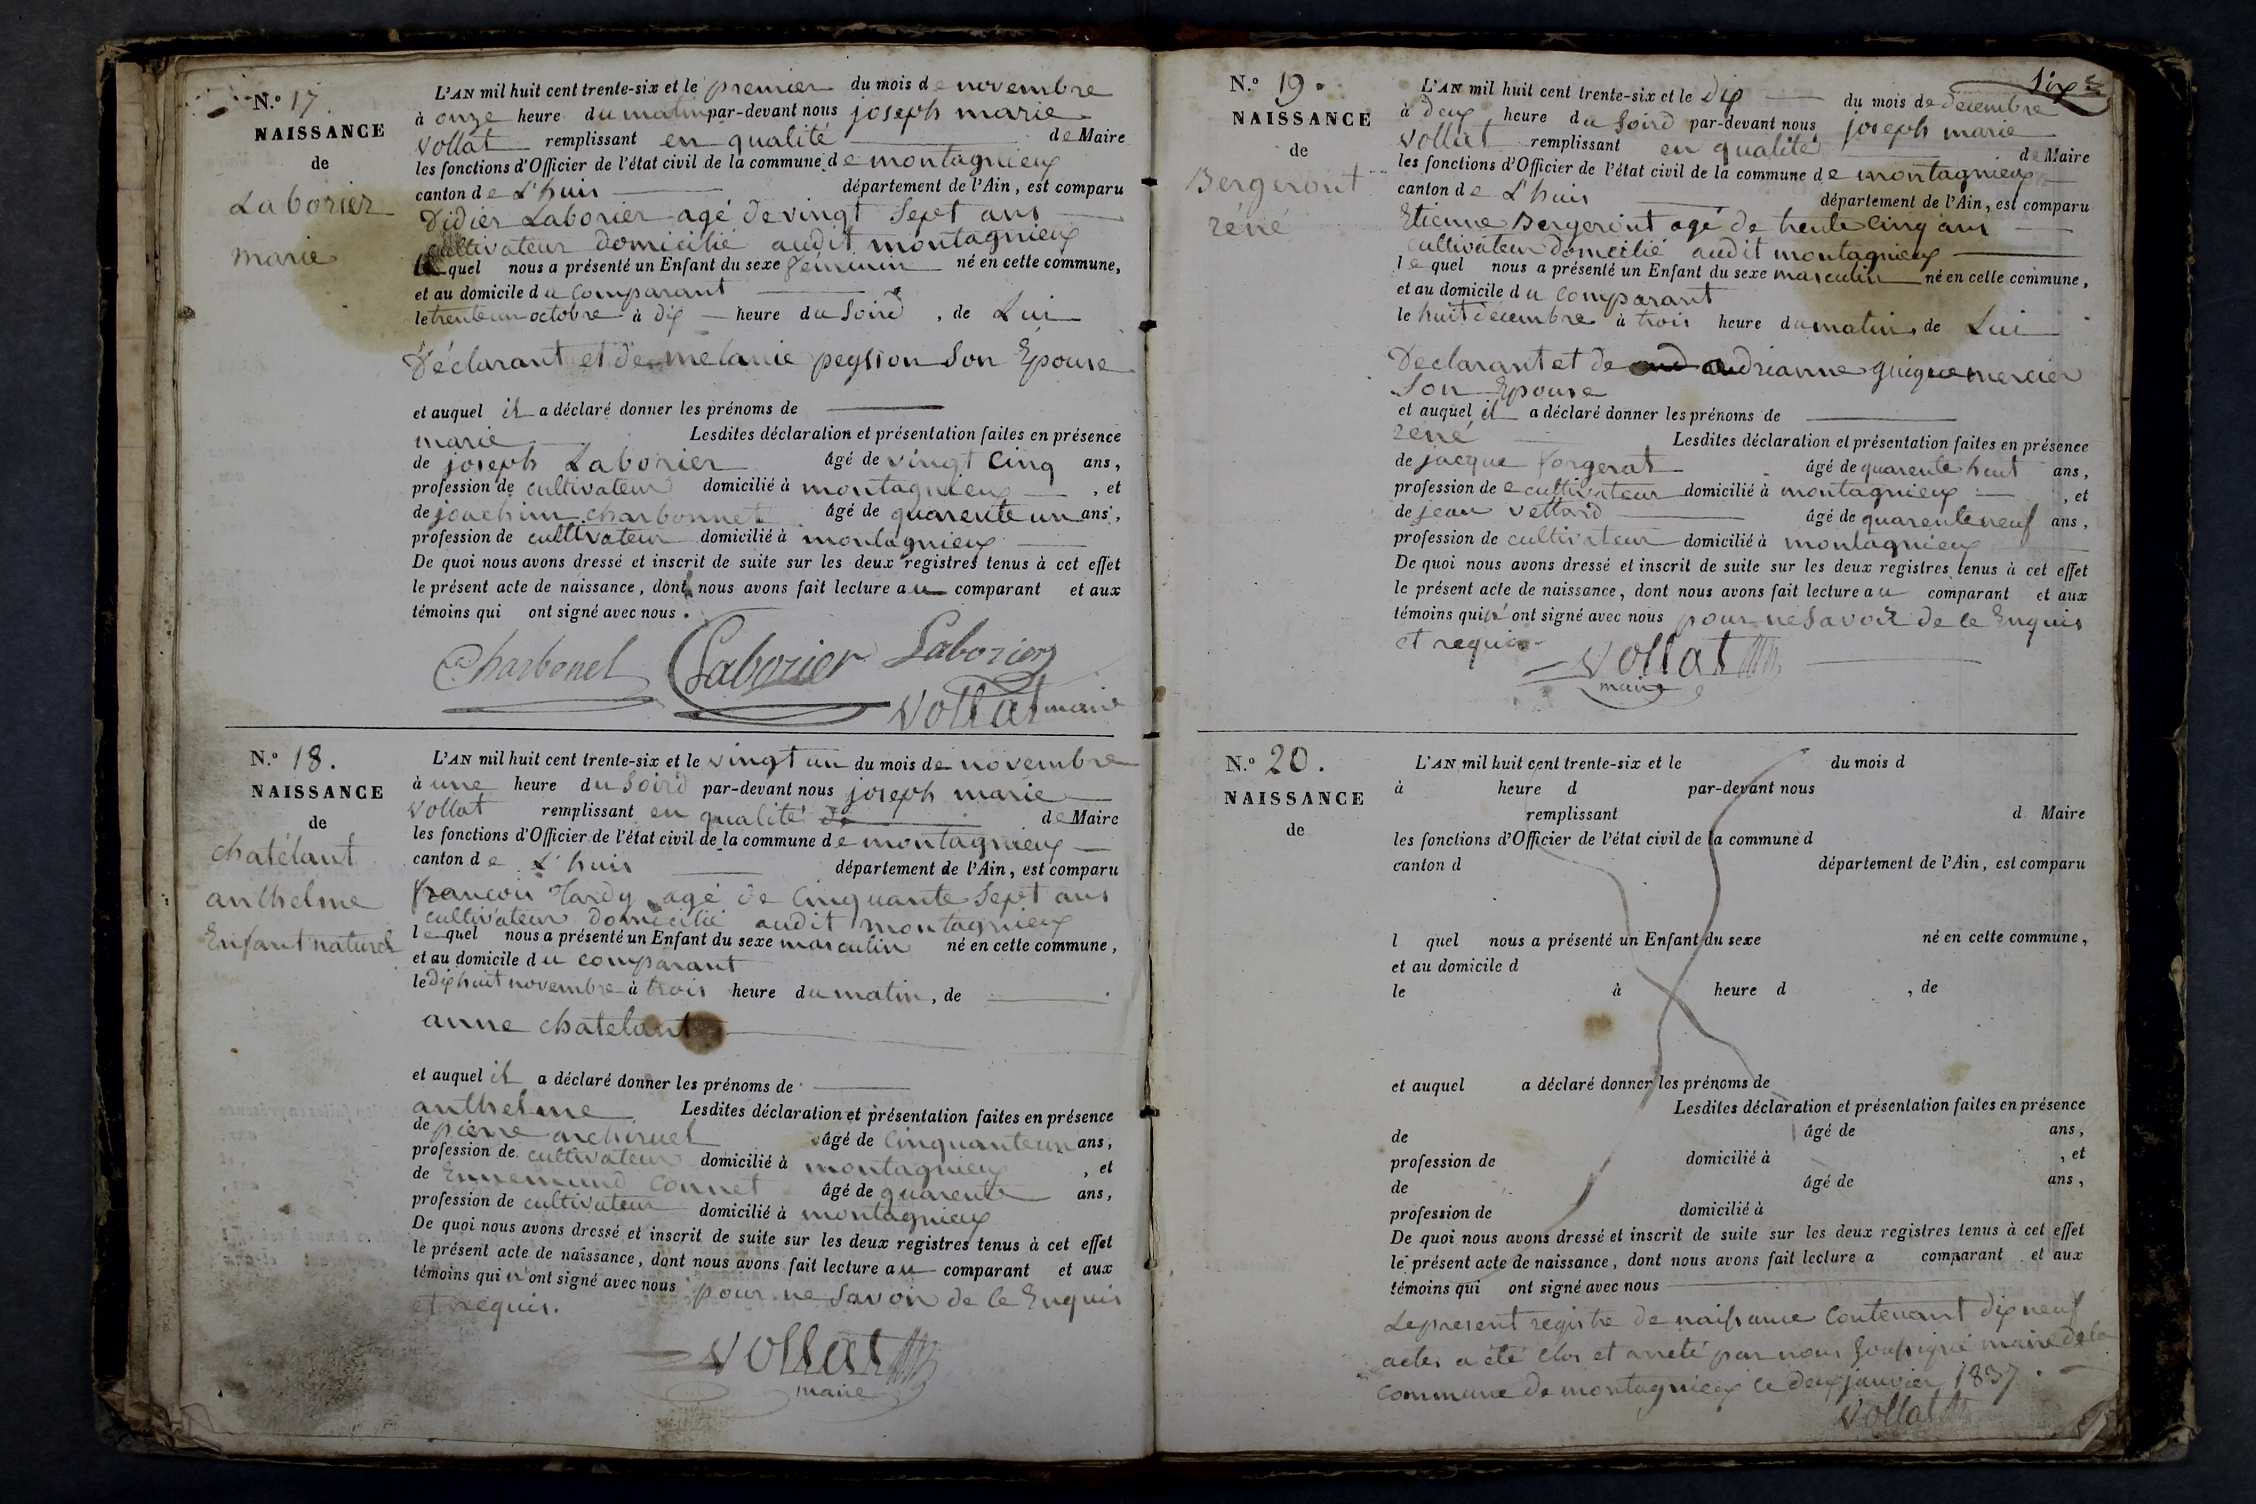 N.o 17.
NAISSANCE
de
Laborier
marie
L'AN mil huit cent trente-six et le premier du mois de novembre
à onze heure du matin par-devant nous joseph marie
Vollat remplissant en qualité de Maire
les fonctions d'Officier de l'état civil de la commune de montagnieux
canton de L'huis département de l'Ain, est comparu
Didier Laborier agé de vingt Sept ans
cultivateur domicilié audit montagnieux
lequel nous a présenté un Enfant du sexe féminin né en cette commune,
et au domicile du comparant
le trente un octobre à dix heure du Soird, de Lui
Déclarant et de mélanie peysson Son Epouse
et auquel il a déclaré donner les prénoms de
marie Lesdites déclaration et présentation faites en présence
de joseph Laborier âgé de vingt Cinq ans,
profession de cultivateur domicilié à montagnieux, et
de joachim charbonnet âgé de quarente un ans,
profession de cultivateur domicilié à montagnieux
De quoi nous avons dressé et inscrit de suite sur les deux registres tenus à cet effet
le présent acte de naissance, dont nous avons fait lecture au comparant et aux
témoins qui ont signé avec nous.
Charbonel Laborier Laborier
Vollat maire
N.o 18.
NAISSANCE
de
chatélant
anthelme
Enfant naturel
L'AN mil huit cent trente-six et le vingt un du mois de novembre
à une heure du Soird par-devant nous joseph marie
Vollat remplissant en qualité de de Maire
les fonctions d'Officier de l'état civil de la commune de montagnieux
canton de L'huis département de l'Ain, est comparu
francois Tardy agé de Cinquante Sept ans
cultivateur domicilié audit montagnieux
lequel nous a présenté un Enfant du sexe masculin né en cette commune,
et au domicile du comparant
le dix huit novembre à trois heure du matin, de
anne chatelant
et auquel il a déclaré donner les prénoms de
anthelme Lesdites déclaration et présentation faites en présence
de pierre âgé de Cinquante un ans,
profession de cultivateur domicilié à montagnieux, et
de Ennemond Connet âgé de quarente ans,
profession de cultivateur domicilié à montagnieux
De quoi nous avons dressé et inscrit de suite sur les deux registres tenus à cet effet
le présent acte de naissance, dont nous avons fait lecture au comparant et aux
témoins qui n'ont signé avec nous pour ne Savoir de ce Enquis
et requis.
Vollat
maire
Six
N.o 19.
NAISSANCE
de
Bergeront
réné
L'AN mil huit cent trente-six et le Dix du mois de decembre
à deux heure du Soird par-devant nous joseph marie
Vollat remplissant en qualité de Maire
les fonctions d'Officier de l'état civil de la commune de montagnieux
canton de L'huis département de l'Ain, est comparu
Etienne Bergeront agé de trente Cinq ans
cultivateur domicilié audit montagnieux
lequel nous a présenté un Enfant du sexe masculin né en cette commune,
et au domicile du comparant
le huit décembre à trois heure du matin, de Lui
Declarant et de andrianne guigue mercier
Son Epouse
et auquel il a déclaré donner les prénoms de
réné Lesdites déclaration et présentation faites en présence
de jacque forgerat âgé de quarente huit ans,
profession de cultivateur domicilié à montagnieux, et
de jean vettard âgé de quarente neuf ans,
profession de cultivateur domicilié à montagnieux
De quoi nous avons dressé et inscrit de suite sur les deux registres tenus à cet effet
le présent acte de naissance, dont nous avons fait lecture au comparant et aux
témoins qui n'ont signé avec nous pour ne Savoir de ce Enquis
et requis
Vollat
maire
N.o 20.
NAISSANCE
de
L'AN mil huit cent trente-six et le du mois d
à heure d par-devant nous
remplissant d Maire
les fonctions d'Officier de l'état civil de la commune d
canton d département de l'Ain, est comparu
l quel nous a présenté un Enfant du sexe né en cette commune,
et au domicile d
le à heure d, de
et auquel a déclaré donner les prénoms de
Lesdites déclaration et présentation faites en présence
de âgé de ans,
profession de domicilié à, et
de âgé de ans,
profession de domicilié à
De quoi nous avons dressé et inscrit de suite sur les deux registres tenus à cet effet
le présent acte de naissance, dont nous avons fait lecture a comparant et aux
témoins qui ont signé avec nous
Le present registre de naissance Contenant dix neuf
actes a été Clos et arreté par nous Soussigné maire de la
Commune de montagnieux ce deux janvier 1837.
Vollat